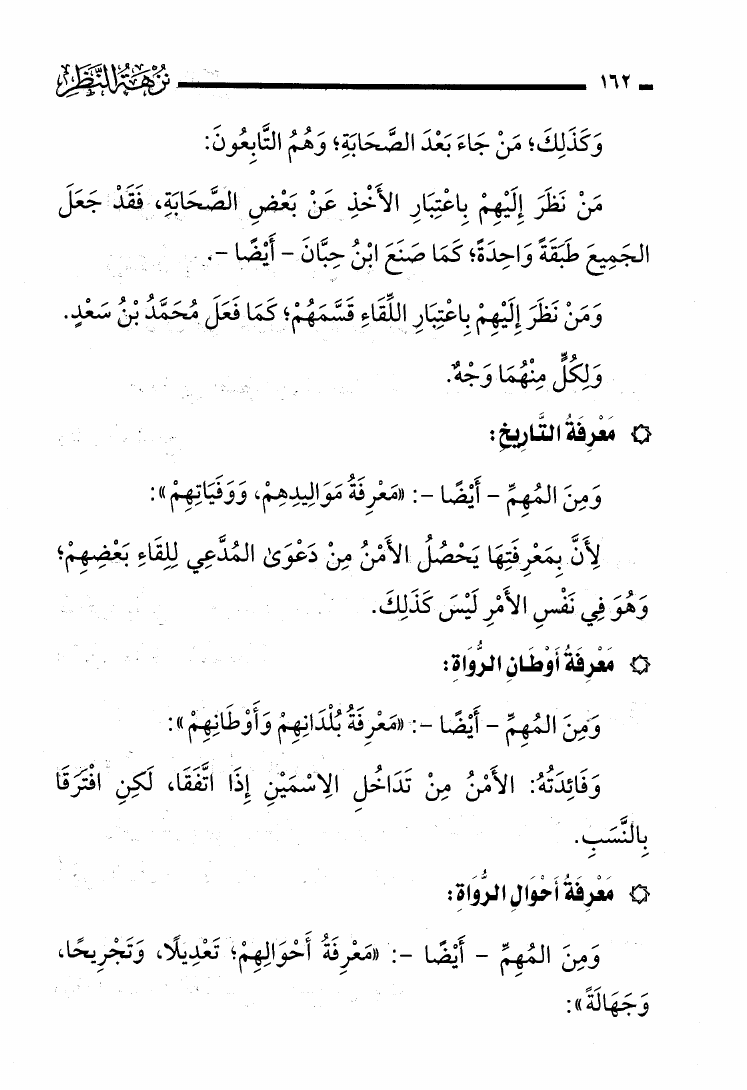 ١٦٢ نُزْهَةُ النَّظَرِ
وَكَذَلِكَ؛ مَنْ جَاءَ بَعْدَ الصَّحَابَةِ؛ وَهُمُ التَّابِعُونَ:
مَنْ نَظَرَ إِلَيْهِمْ بِاعْتِبَارِ الأَخْذِ عَنْ بَعْضِ الصَّحَابَةِ، فَقَدْ جَعَلَ
الجَمِيعَ طَبَقَةً وَاحِدَةً؛ كَمَا صَنَعَ ابْنُ حِبَّانَ - أَيْضًا -.
وَمَنْ نَظَرَ إِلَيْهِمْ بِاعْتِبَارِ اللِّقَاءِ قَسَّمَهُمْ؛ كَمَا فَعَلَ مُحَمَّدُ بْنُ سَعْدٍ.
وَلِكُلٍّ مِنْهُمَا وَجْهٌ.
۞ مَعْرِفَةُ التَّارِيخِ:
وَمِنَ المُهِمِّ - أَيْضًا -: «مَعْرِفَةُ مَوَالِيدِهِمْ، وَوَفَيَاتِهِمْ»:
لِأَنَّ بِمَعْرِفَتِهَا يَحْصُلُ الأَمْنُ مِنْ دَعْوَىٰ المُدَّعِي لِلِقَاءِ بَعْضِهِمْ؛
وَهُوَ فِي نَفْسِ الأَمْرِ لَيْسَ كَذَلِكَ.
۞ مَعْرِفَةُ أَوْطَانِ الرُّوَاةِ:
وَمِنَ المُهِمِّ - أَيْضًا -: «مَعْرِفَةُ بُلْدَانِهِمْ وَأَوْطَانِهِمْ»:
وَفَائِدَتُهُ: الأَمْنُ مِنْ تَدَاخُلِ الِاسْمَيْنِ إِذَا اتَّفَقَا، لَكِنِ افْتَرَقَا
بِالنَّسَبِ.
۞ مَعْرِفَةُ أَحْوَالِ الرُّوَاةِ:
وَمِنَ المُهِمِّ - أَيْضًا -: «مَعْرِفَةُ أَحْوَالِهِمْ؛ تَعْدِيلًا، وَتَجْرِيحًا،
وَجَهَالَةً»: